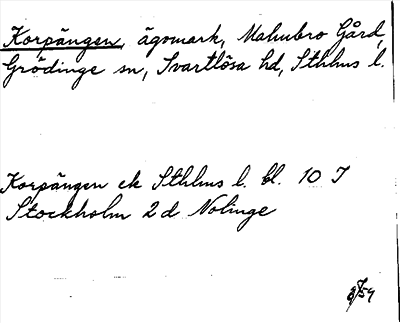 Korpängen, ägomark, Malmbro Gård,
Grödinge sn, Svartlösa hd, Sthlms l.
Korpängen ek Sthlms l. bl. 10 I
Stockholm 2 d Nolinge